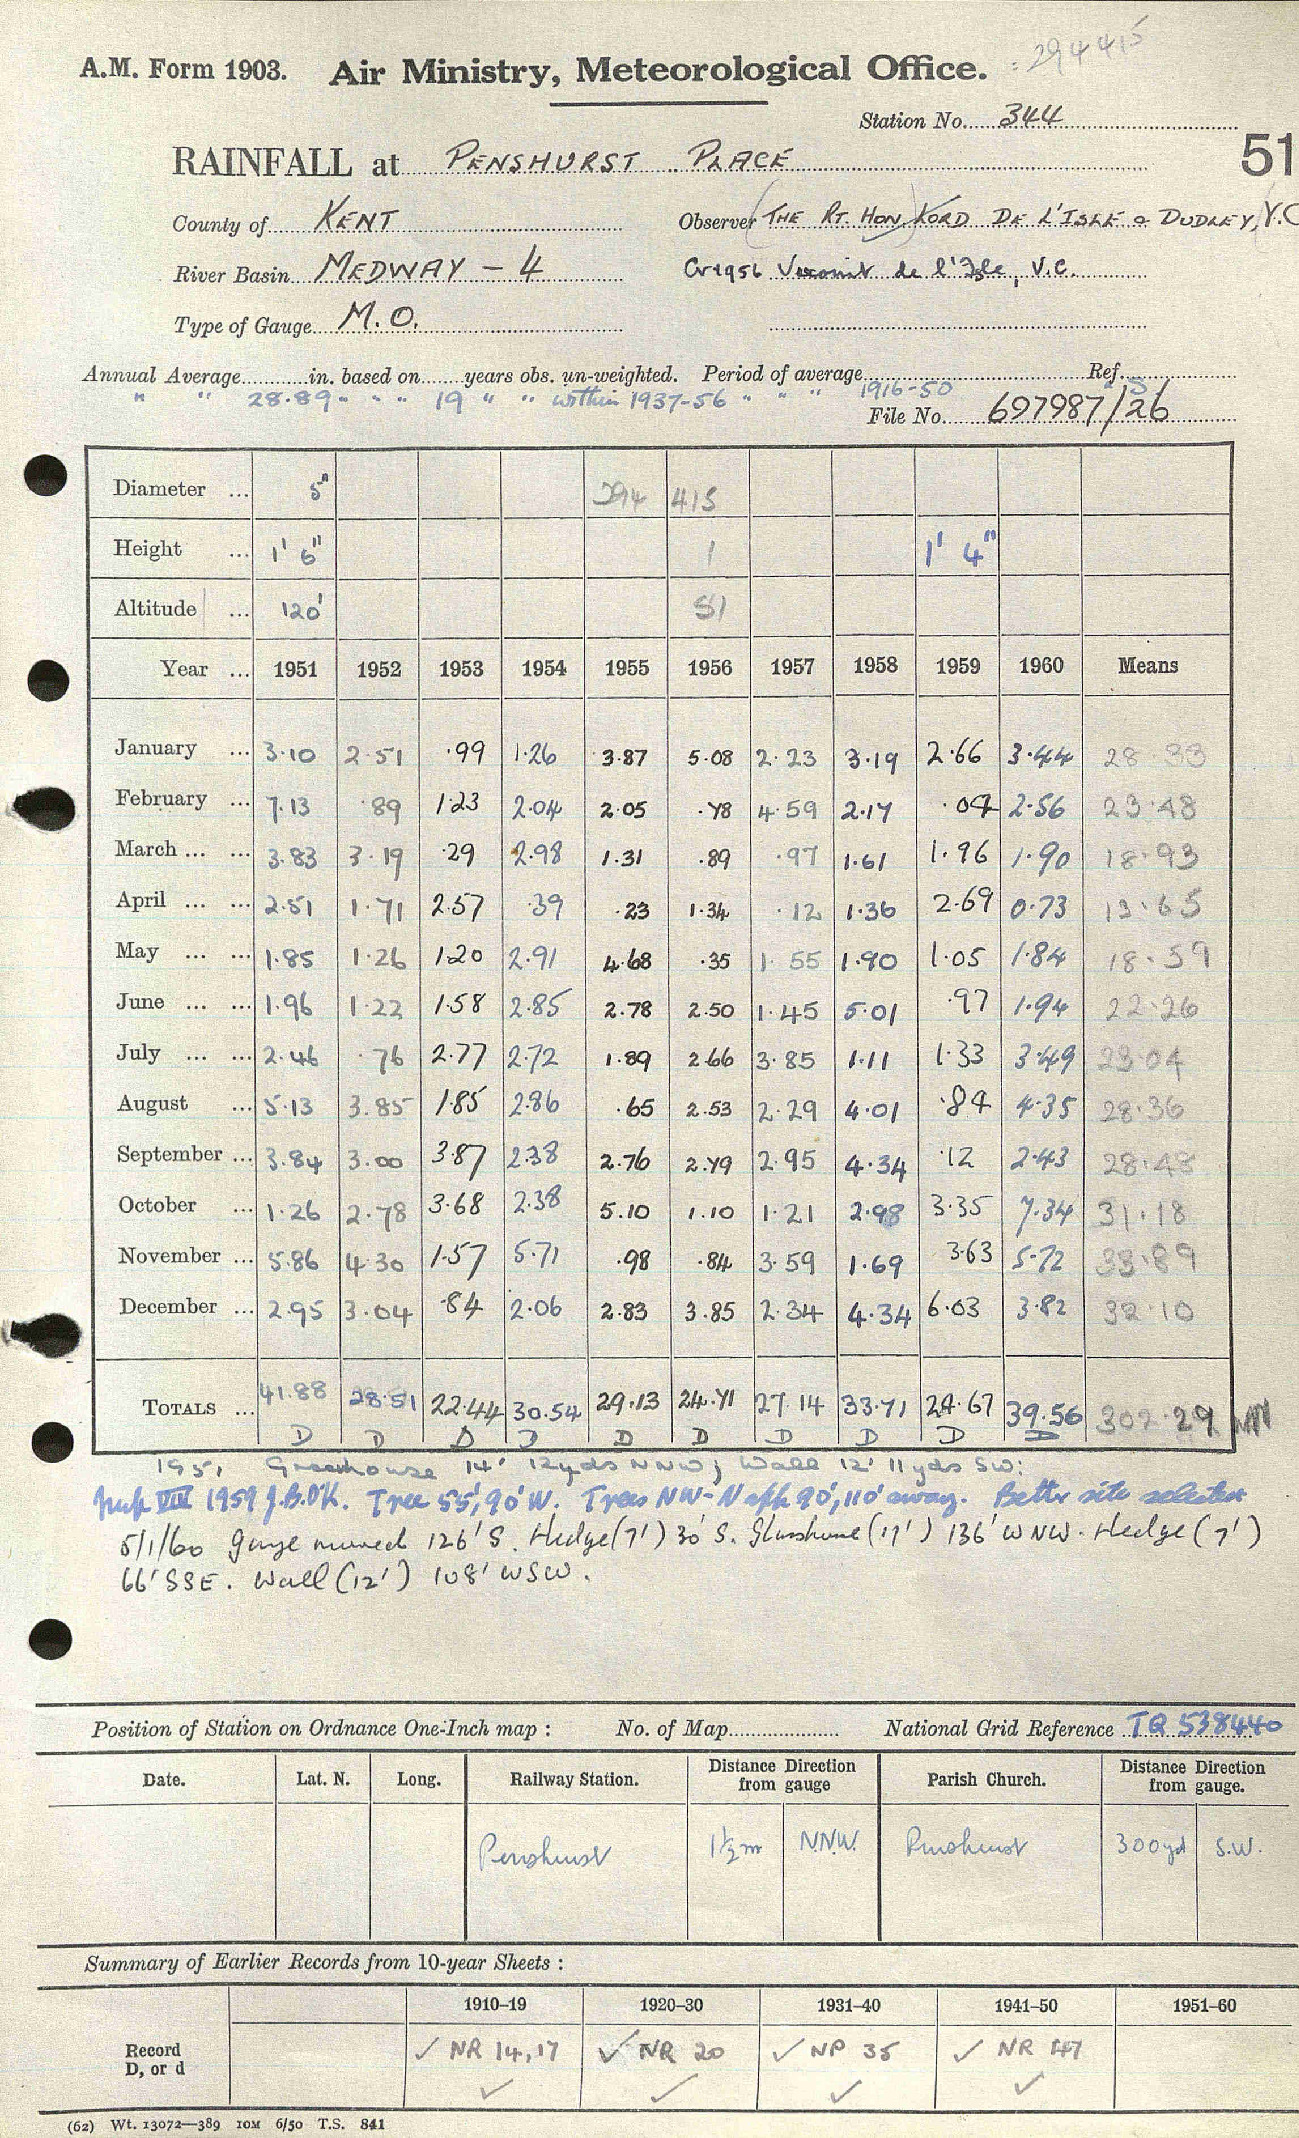 294415
A.M. Form 1903. Air Ministry, Meteorological Office.
Station No. 344
51
RAINFALL at PENSHURST PLACE
County of KENT Observer (THE RT. HON) LORD DE L'ISLE & DUDLEY, V.C
River Basin MEDWAY - 4 1956 Viscount de l'Isle, V.C.
Type of Gauge M.O.
Annual Average in. based on years obs. un-weighted. Period of average Ref.
" " 28.89 " " " 19 " " within 1937-56 " " " 1916-50
File No. 697987/26
Diameter ... 5" 294 415
Height ... 1' 6" 1 1' 4"
Altitude ... 120' 51
Year ... 1951 1952 1953 1954 1955 1956 1957 1958 1959 1960 Means
January ... 3.10 2.51 .99 1.26 3.87 5.08 2.23 3.19 2.66 3.44 28.33
February ... 7.13 .89 1.23 2.04 2.05 .78 4.59 2.17 .04 2.56 23.48
March ... ... 3.83 3.19 .29 2.98 1.31 .89 .97 1.61 1.96 1.90 18.93
April ... ... 2.51 1.71 2.57 .39 .23 1.34 .12 1.36 2.69 0.73 13.65
May ... ... 1.85 1.26 1.20 2.91 4.68 .35 1.55 1.90 1.05 1.84 18.59
June ... ... 1.96 1.22 1.58 2.85 2.78 2.50 1.45 5.01 .97 1.94 22.26
July ... ... 2.46 .76 2.77 2.72 1.89 2.66 3.85 1.11 1.33 3.49 23.04
August ... 5.13 3.85 1.85 2.86 .65 2.53 2.29 4.01 .84 4.35 28.36
September ... 3.84 3.00 3.87 2.38 2.76 2.79 2.95 4.34 .12 2.43 28.48
October ... 1.26 2.78 3.68 2.38 5.10 1.10 1.21 2.98 3.35 7.34 31.18
November ... 5.86 4.30 1.57 5.71 .98 .84 3.59 1.69 3.63 5.72 33.89
December ... 2.95 3.04 .84 2.06 2.83 3.85 2.34 4.34 6.03 3.82 32.10
TOTALS ... 41.88 28.51 22.44 30.54 29.13 24.71 27.14 33.71 24.67 39.56 302.29
D D D D D D D D D D
1951 Greenhouse 14' 12yds NNW; Wall 12' 11yds SW:
Insp VIII 1959 J.B.D'K. Tree 55', 90' W. Trees NW-N 90', 110' away. Better site selected
5/1/60 gauge moved 126' S. Hedge (7') 30' S. Glasshouse (17') 136' WNW. Hedge (7')
66' SSE. Wall (12') 108' WSW.
Position of Station on Ordnance One-Inch map : No. of Map National Grid Reference TQ 538440
Date. Lat. N. Long. Railway Station. Distance Direction from gauge Parish Church. Distance Direction from gauge.
Penshurst 1½ m N.N.W. Penshurst 300yd S.W.
Summary of Earlier Records from 10-year Sheets :
1910–19 1920–30 1931–40 1941–50 1951–60
Record D, or d ✓ NR 14,17 ✓ NR 20 ✓ NR 35 ✓ NR 47
✓ ✓ ✓ ✓
(62) Wt. 13072—389 10M 6/50 T.S. 841